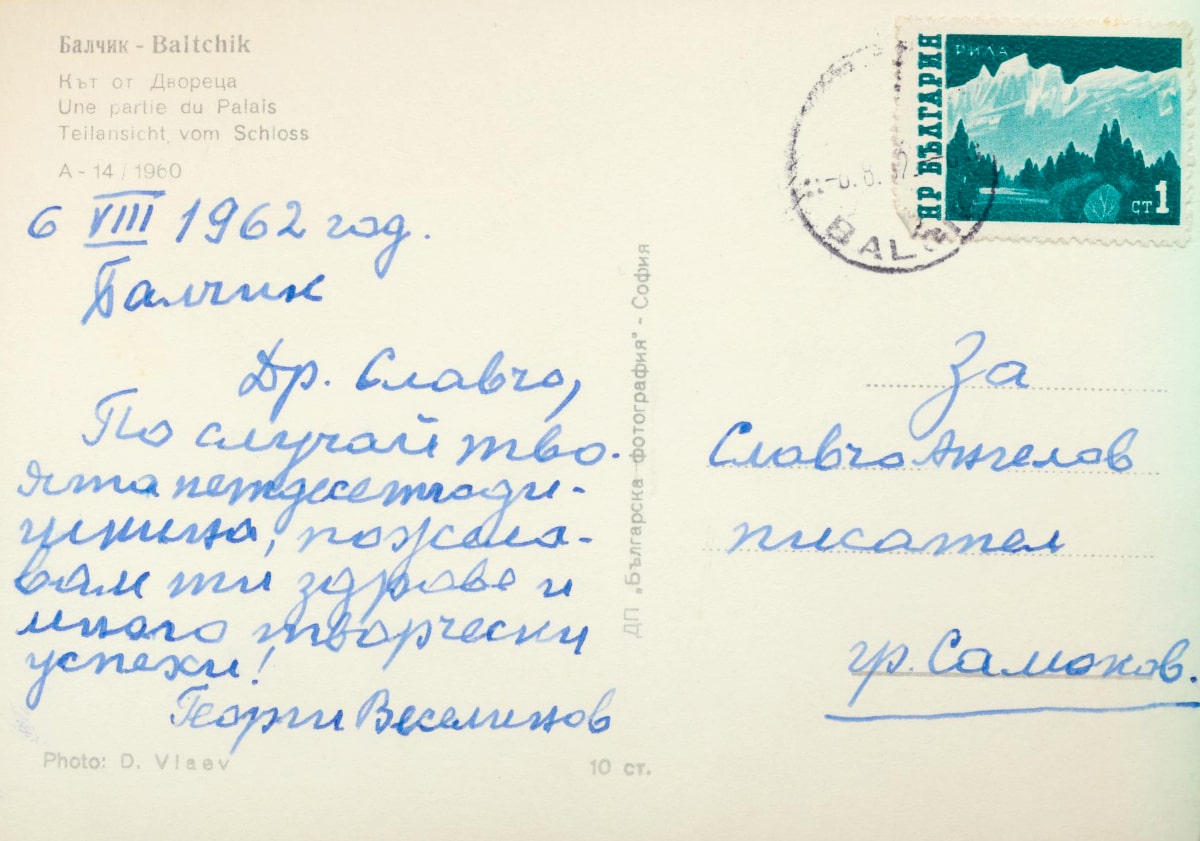 Балчик - Baltchik
Кът от Двореца
Une partie du Palais
Teilansicht vom Schloss
A - 14 / 1960
6 VIII 1962 год.
Балчик
Др. Славчо,
По случай тво-
ята петдесетгоди-
шнина, пожела-
вам ти здраве и
много творчески
успехи!
Георги Веселинов
Photo: D. Vlaev
10 ст.
ДП „Българска фотография" - София
НР БЪЛГАРИЯ
РИЛА
СТ 1
BAL
За
Славчо Ангелов
писател
гр. Самоков.